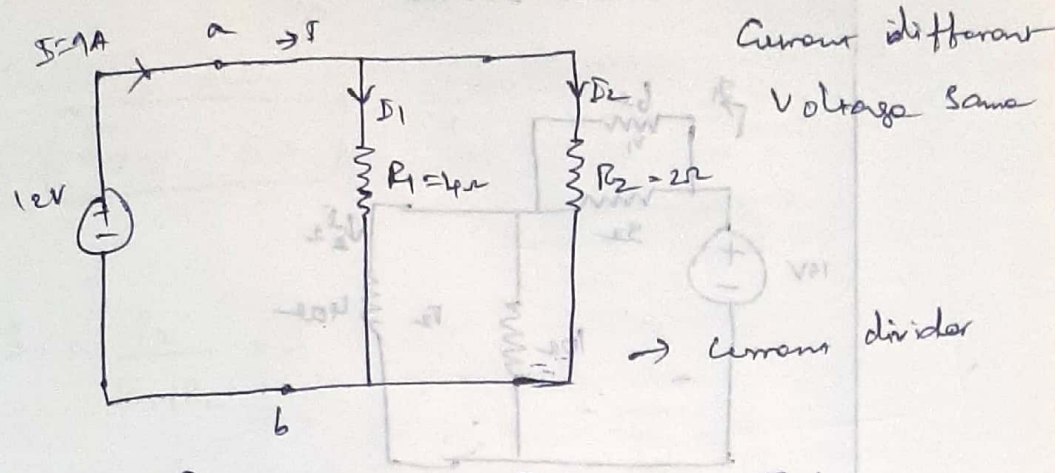 I=9A
a
→I
Current different
Voltage Same
I1
I2
12V
+
-
R1=4Ω
R2=2Ω
→ Current divider
b